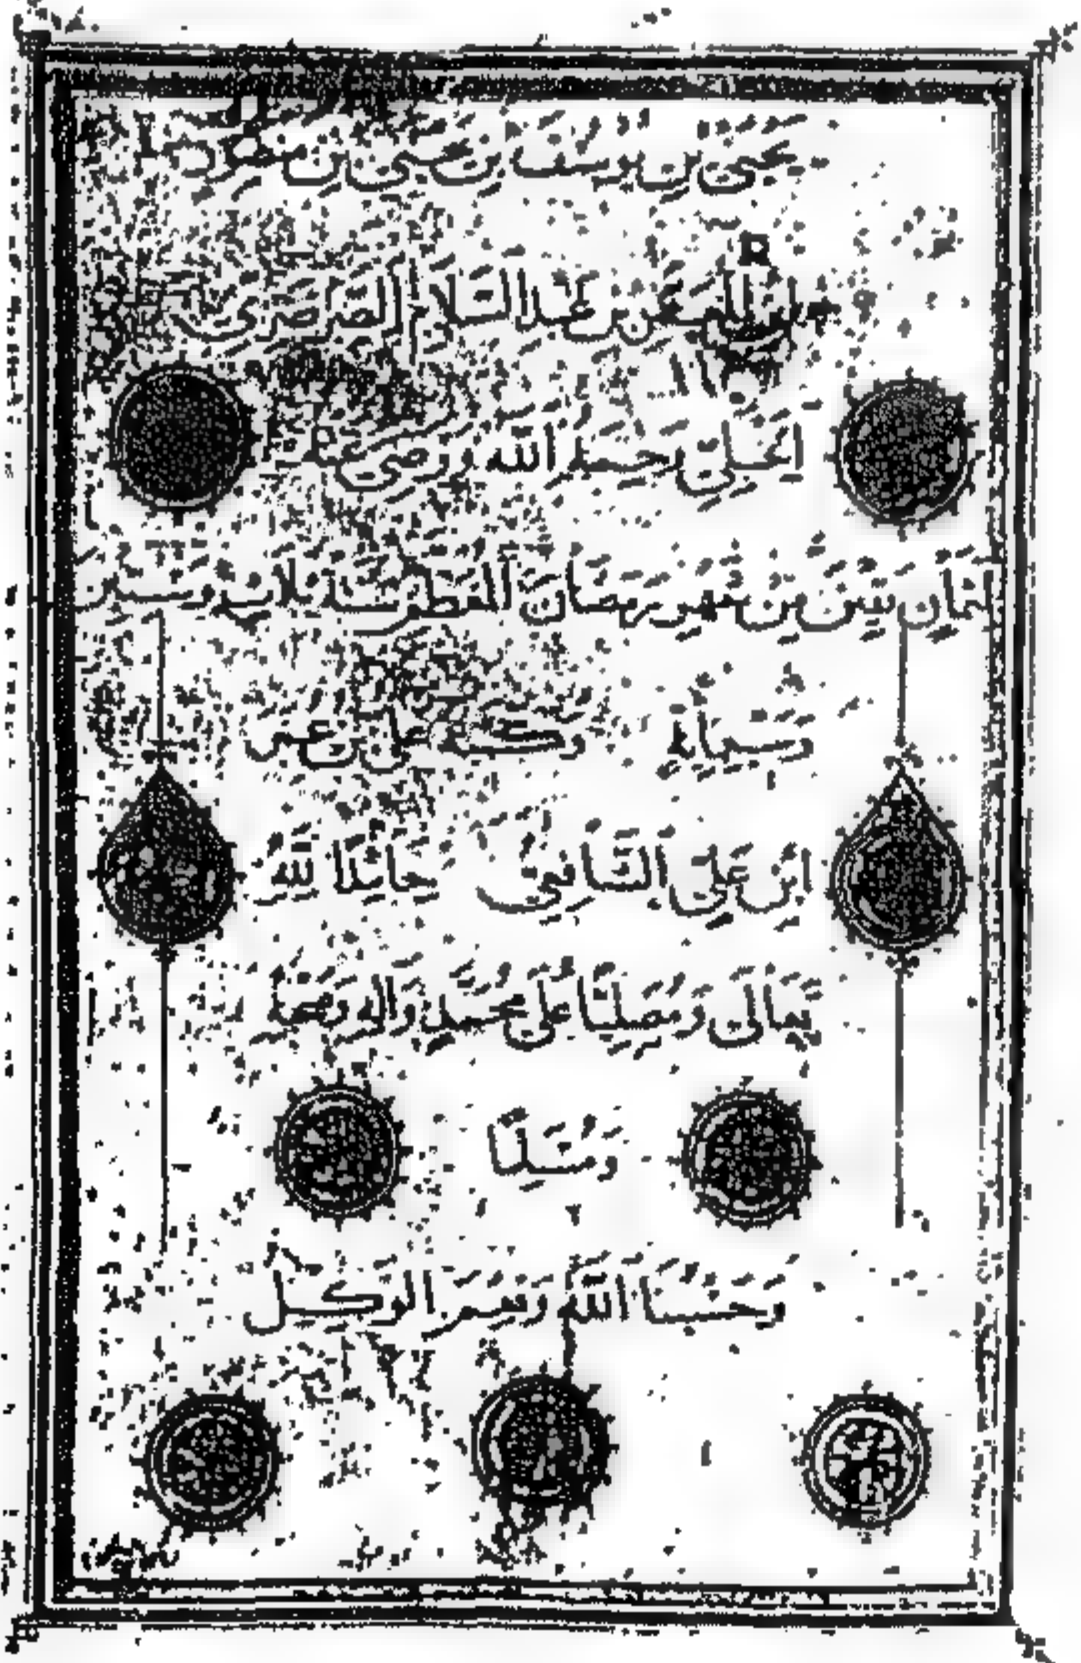 يَحْيَى بْنِ يُوسُفَ بْنِ يَحْيَى بْنِ مَنْصُورِ
ابْنِ الْمُعَمَّرِ بْنِ عَبْدِ السَّلَامِ الصَّرْصَرِيِّ
الْحَنْبَلِيِّ رَحِمَهُ اللَّهُ وَرَضِيَ عَنْهُ
لِثَمَانٍ بَقِينَ مِنْ شَهْرِ رَمَضَانَ الْمُعَظَّمِ سَنَةَ ثَلَاثٍ وَسِتِّينَ
وَسَبْعِمِائَةٍ وَكَتَبَهُ عَلِيُّ بْنُ عُمَرَ
ابْنِ عَلِيٍّ الشَّافِعِيُّ حَامِدًا لِلَّهِ
تَعَالَى وَمُصَلِّيًا عَلَى مُحَمَّدٍ وَآلِهِ وَصَحْبِهِ
وَمُسَلِّمًا
وَحَسْبُنَا اللَّهُ وَنِعْمَ الْوَكِيلُ